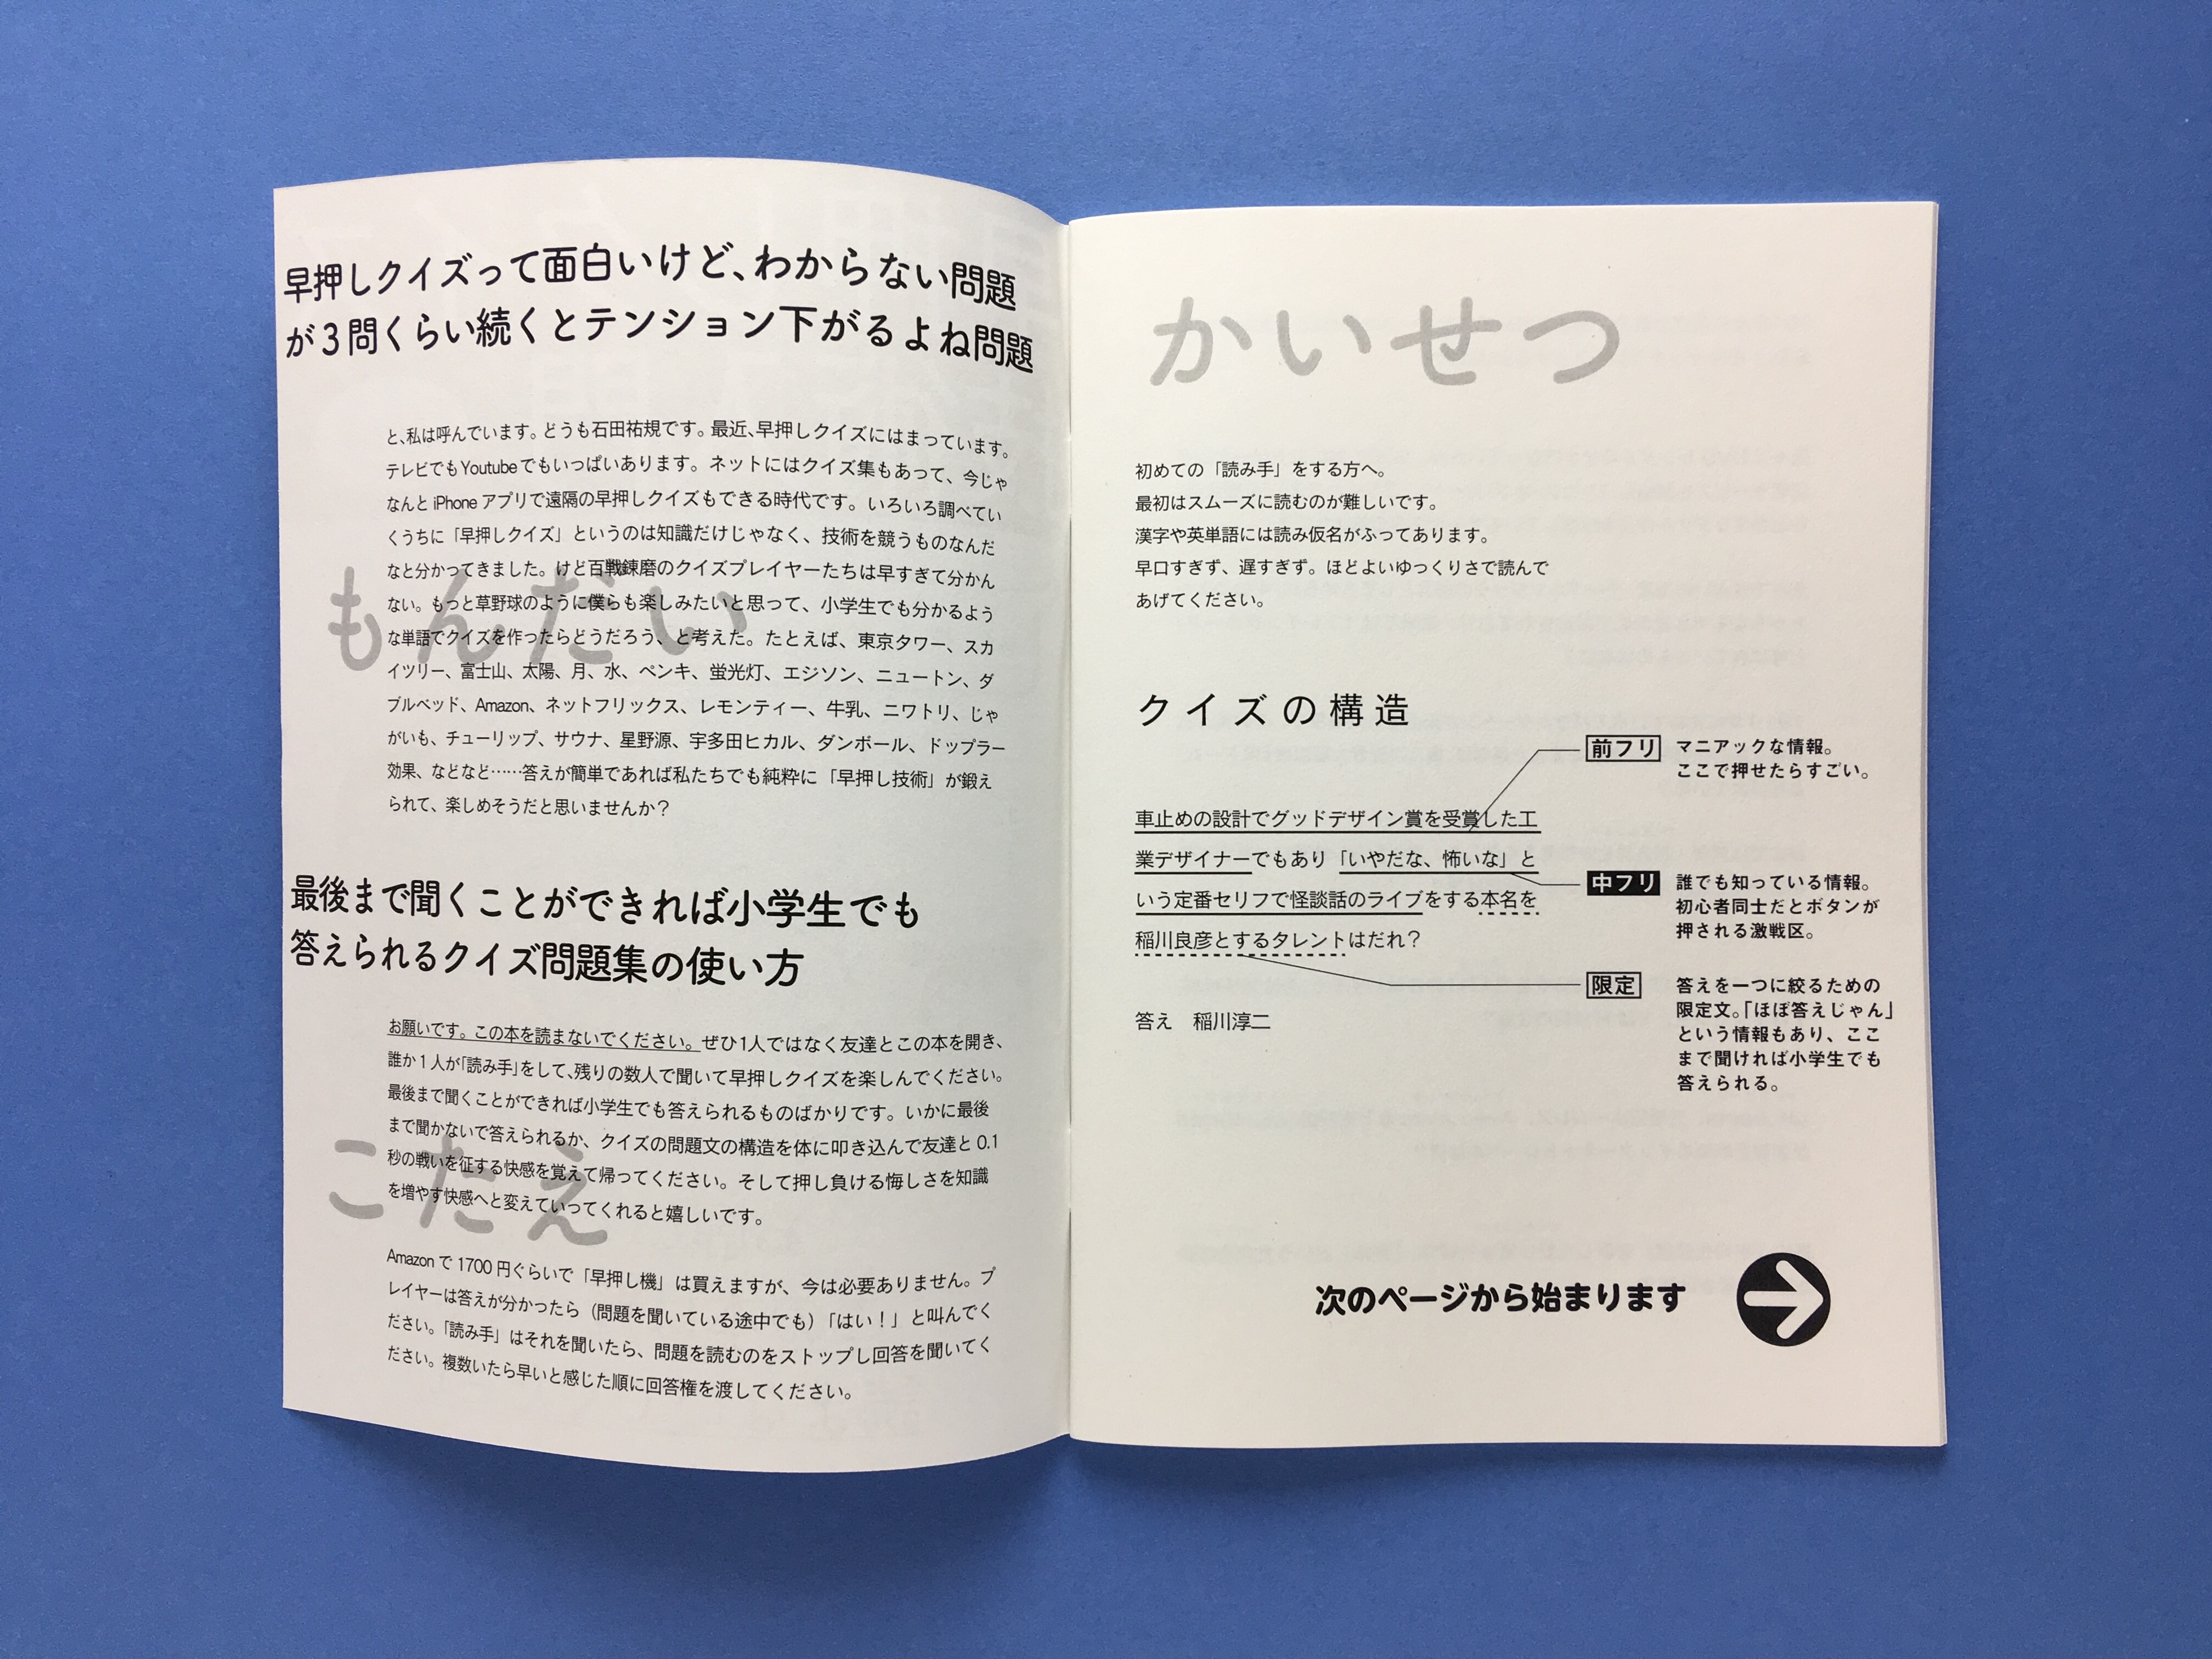 早押しクイズって面白いけど、わからない問題
が3問くらい続くとテンション下がるよね問題
と、私は呼んでいます。どうも石田祐規です。最近、早押しクイズにはまっています。
テレビでもYoutubeでもいっぱいあります。ネットにはクイズ集もあって、今じゃ
なんと iPhone アプリで遠隔の早押しクイズもできる時代です。いろいろ調べてい
くうちに「早押しクイズ」というのは知識だけじゃなく、技術を競うものなんだ
なと分かってきました。けど百戦錬磨のクイズプレイヤーたちは早すぎて分かん
ない。もっと草野球のように僕らも楽しみたいと思って、小学生でも分かるよう
な単語でクイズを作ったらどうだろう、と考えた。たとえば、東京タワー、スカ
イツリー、富士山、太陽、月、水、ペンキ、蛍光灯、エジソン、ニュートン、ダ
ブルベッド、Amazon、ネットフリックス、レモンティー、牛乳、ニワトリ、じゃ
がいも、チューリップ、サウナ、星野源、宇多田ヒカル、ダンボール、ドップラー
効果、などなど……答えが簡単であれば私たちでも純粋に「早押し技術」が鍛え
られて、楽しめそうだと思いませんか？
もんだい
最後まで聞くことができれば小学生でも
答えられるクイズ問題集の使い方
お願いです。この本を読まないでください。ぜひ1人ではなく友達とこの本を開き、
誰か1人が「読み手」をして、残りの数人で聞いて早押しクイズを楽しんでください。
最後まで聞くことができれば小学生でも答えられるものばかりです。いかに最後
まで聞かないで答えられるか、クイズの問題文の構造を体に叩き込んで友達と 0.1
秒の戦いを征する快感を覚えて帰ってください。そして押し負ける悔しさを知識
を増やす快感へと変えていってくれると嬉しいです。
こたえ
Amazon で 1700 円ぐらいで「早押し機」は買えますが、今は必要ありません。プ
レイヤーは答えが分かったら（問題を聞いている途中でも）「はい！」と叫んでく
ださい。「読み手」はそれを聞いたら、問題を読むのをストップし回答を聞いてく
ださい。複数いたら早いと感じた順に回答権を渡してください。
かいせつ
初めての「読み手」をする方へ。
最初はスムーズに読むのが難しいです。
漢字や英単語には読み仮名がふってあります。
早口すぎず、遅すぎず。ほどよいゆっくりさで読んで
あげてください。
クイズの構造
前フリ マニアックな情報。
ここで押せたらすごい。
車止めの設計でグッドデザイン賞を受賞した工
業デザイナーでもあり「いやだな、怖いな」と
いう定番セリフで怪談話のライブをする本名を
稲川良彦とするタレントはだれ？
中フリ 誰でも知っている情報。
初心者同士だとボタンが
押される激戦区。
限定 答えを一つに絞るための
限定文。「ほぼ答えじゃん」
という情報もあり、ここ
まで聞ければ小学生でも
答えられる。
答え 稲川淳二
次のページから始まります